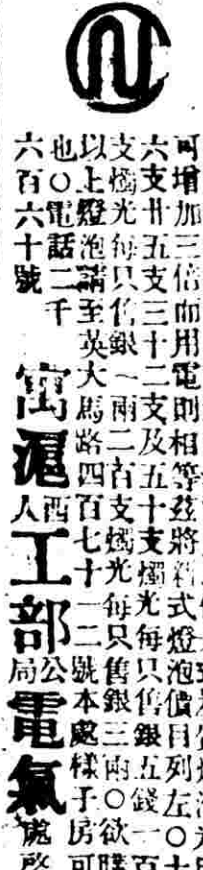 可增加三倍而用電則相等茲將新式燈泡價目列左〇十
六支廿五支三十二支及五十支燭光每只售銀五錢一百
支燭光每只售銀一兩二百支燭光每只售銀三兩〇欲購
以上燈泡請至英大馬路四百七十一二號本處樣子房可
也〇電話二千
六百六十號
寓滬西人工部公局電氣處啓